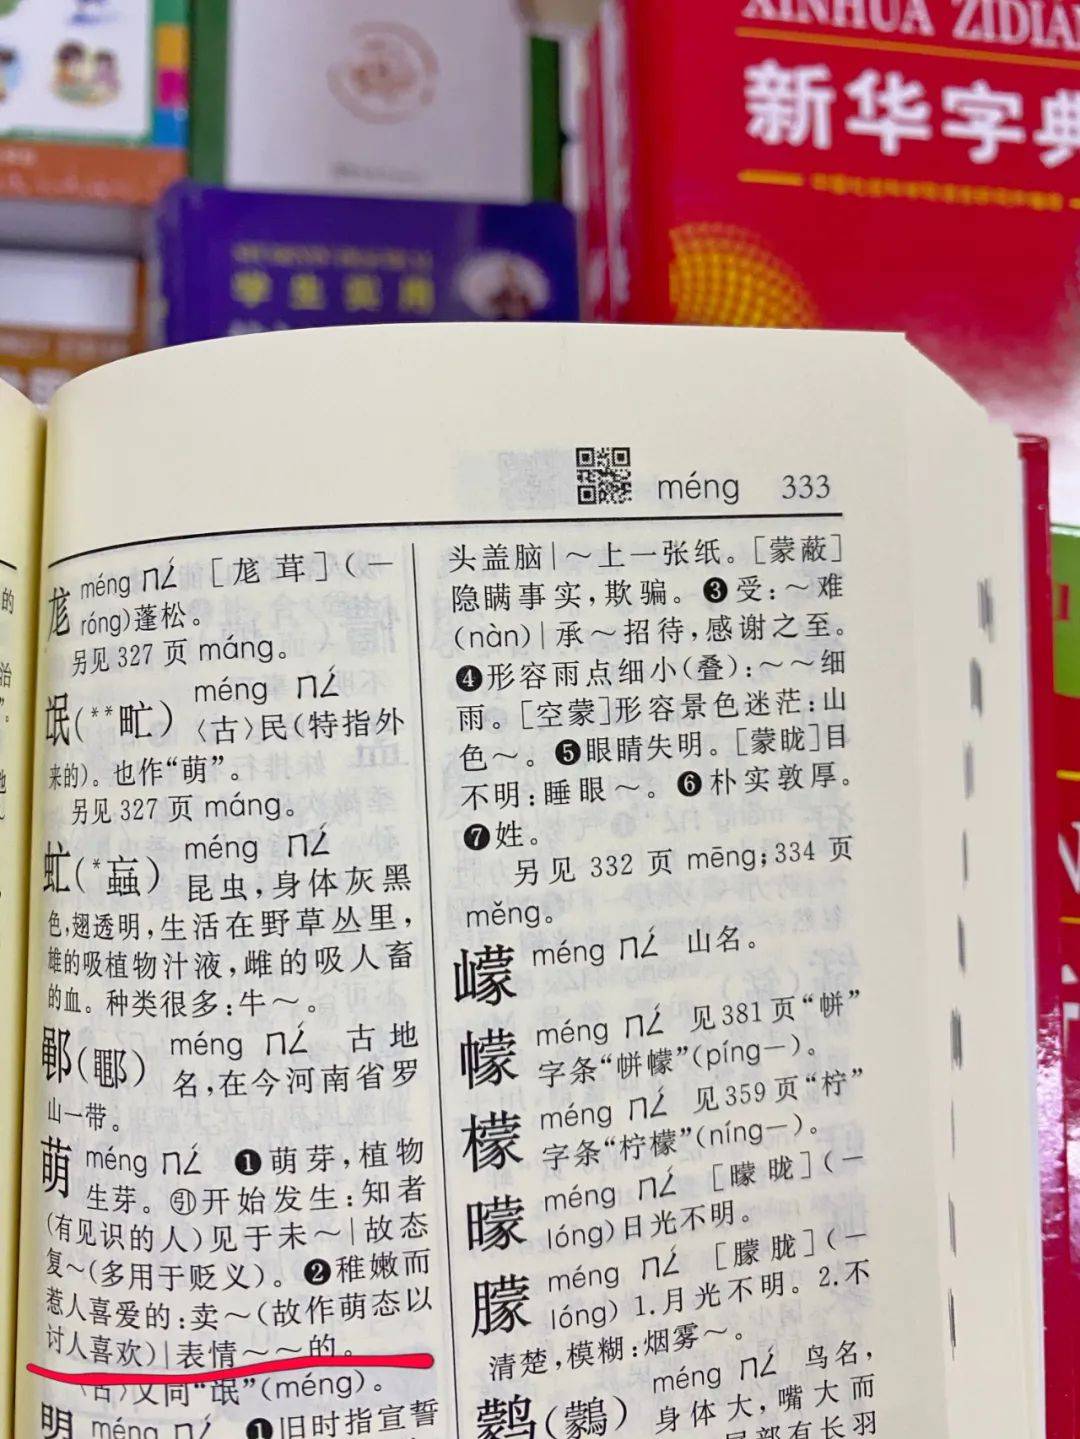 XINHUA ZIDIAN
新华字典
学生实用
méng 333
尨 méng ㄇㄥˊ [尨茸](—
róng)蓬松。
另见 327 页 máng。
氓(**甿) méng ㄇㄥˊ
〈古〉民(特指外
来的)。也作“萌”。
另见 327 页 máng。
虻(*蝱) méng ㄇㄥˊ
昆虫，身体灰黑
色，翅透明，生活在野草丛里，
雄的吸植物汁液，雌的吸人畜
的血。种类很多：牛～。
鄳(鄳) méng ㄇㄥˊ 古地
名，在今河南省罗
山一带。
萌 méng ㄇㄥˊ ❶萌芽，植物
生芽。㊀开始发生：知者
(有见识的人)见于未～|故态
复～(多用于贬义)。❷稚嫩而
惹人喜爱的：卖～(故作萌态以
讨人喜欢)|表情～～的。
〈古〉又同“氓”(méng)。
明 méng ㄇㄥˊ ❶旧时指宣誓
头盖脑|～上一张纸。[蒙蔽]
隐瞒事实，欺骗。❸受：～难
(nàn)|承～招待，感谢之至。
❹形容雨点细小(叠)：～～细
雨。[空蒙]形容景色迷茫：山
色～。❺眼睛失明。[蒙眬]目
不明：睡眼～。❻朴实敦厚。
❼姓。
另见 332 页 mēng；334 页
měng。
㠓 méng ㄇㄥˊ 山名。
幪 méng ㄇㄥˊ 见381页“帡”
字条“帡幪”(píng—)。
檬 méng ㄇㄥˊ 见359页“柠”
字条“柠檬”(níng—)。
曚 méng ㄇㄥˊ [曚昽](—
lóng)日光不明。
朦 méng ㄇㄥˊ [朦胧](—
lóng) 1.月光不明。2.不
清楚，模糊：烟雾～。
鹲(鸏) méng ㄇㄥˊ 鸟名，
身体大，嘴大而
部有长羽